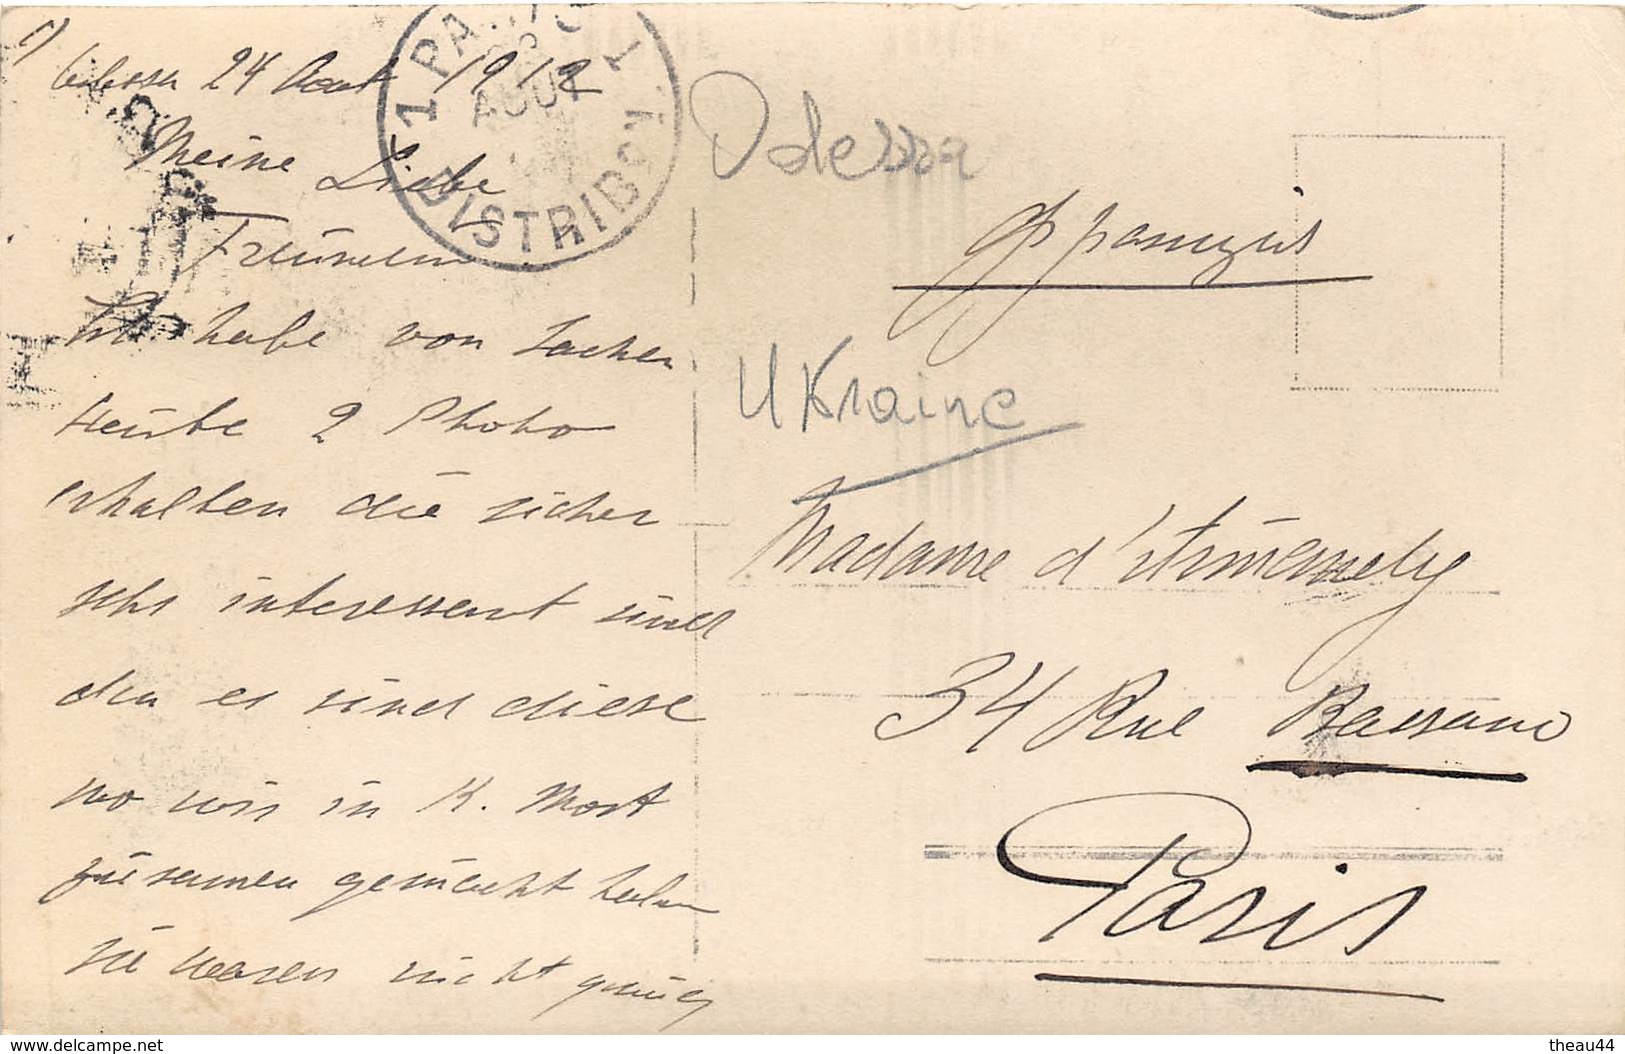 Odessa 24 Aout 1912
Meine Liebe
Freundin
Ich habe von Sachen
Heute 2 Photo
erhalten die sicher
sehr interessant sind
den es sind diese
wo wir in K. Mort
zusamen gemacht haben
sie waren nicht genug
1 PA
AOUT
DISTRIBON
Odessa
Ukraine
Madame
34 Rue Bassano
Paris
www.delcampe.net
theau44